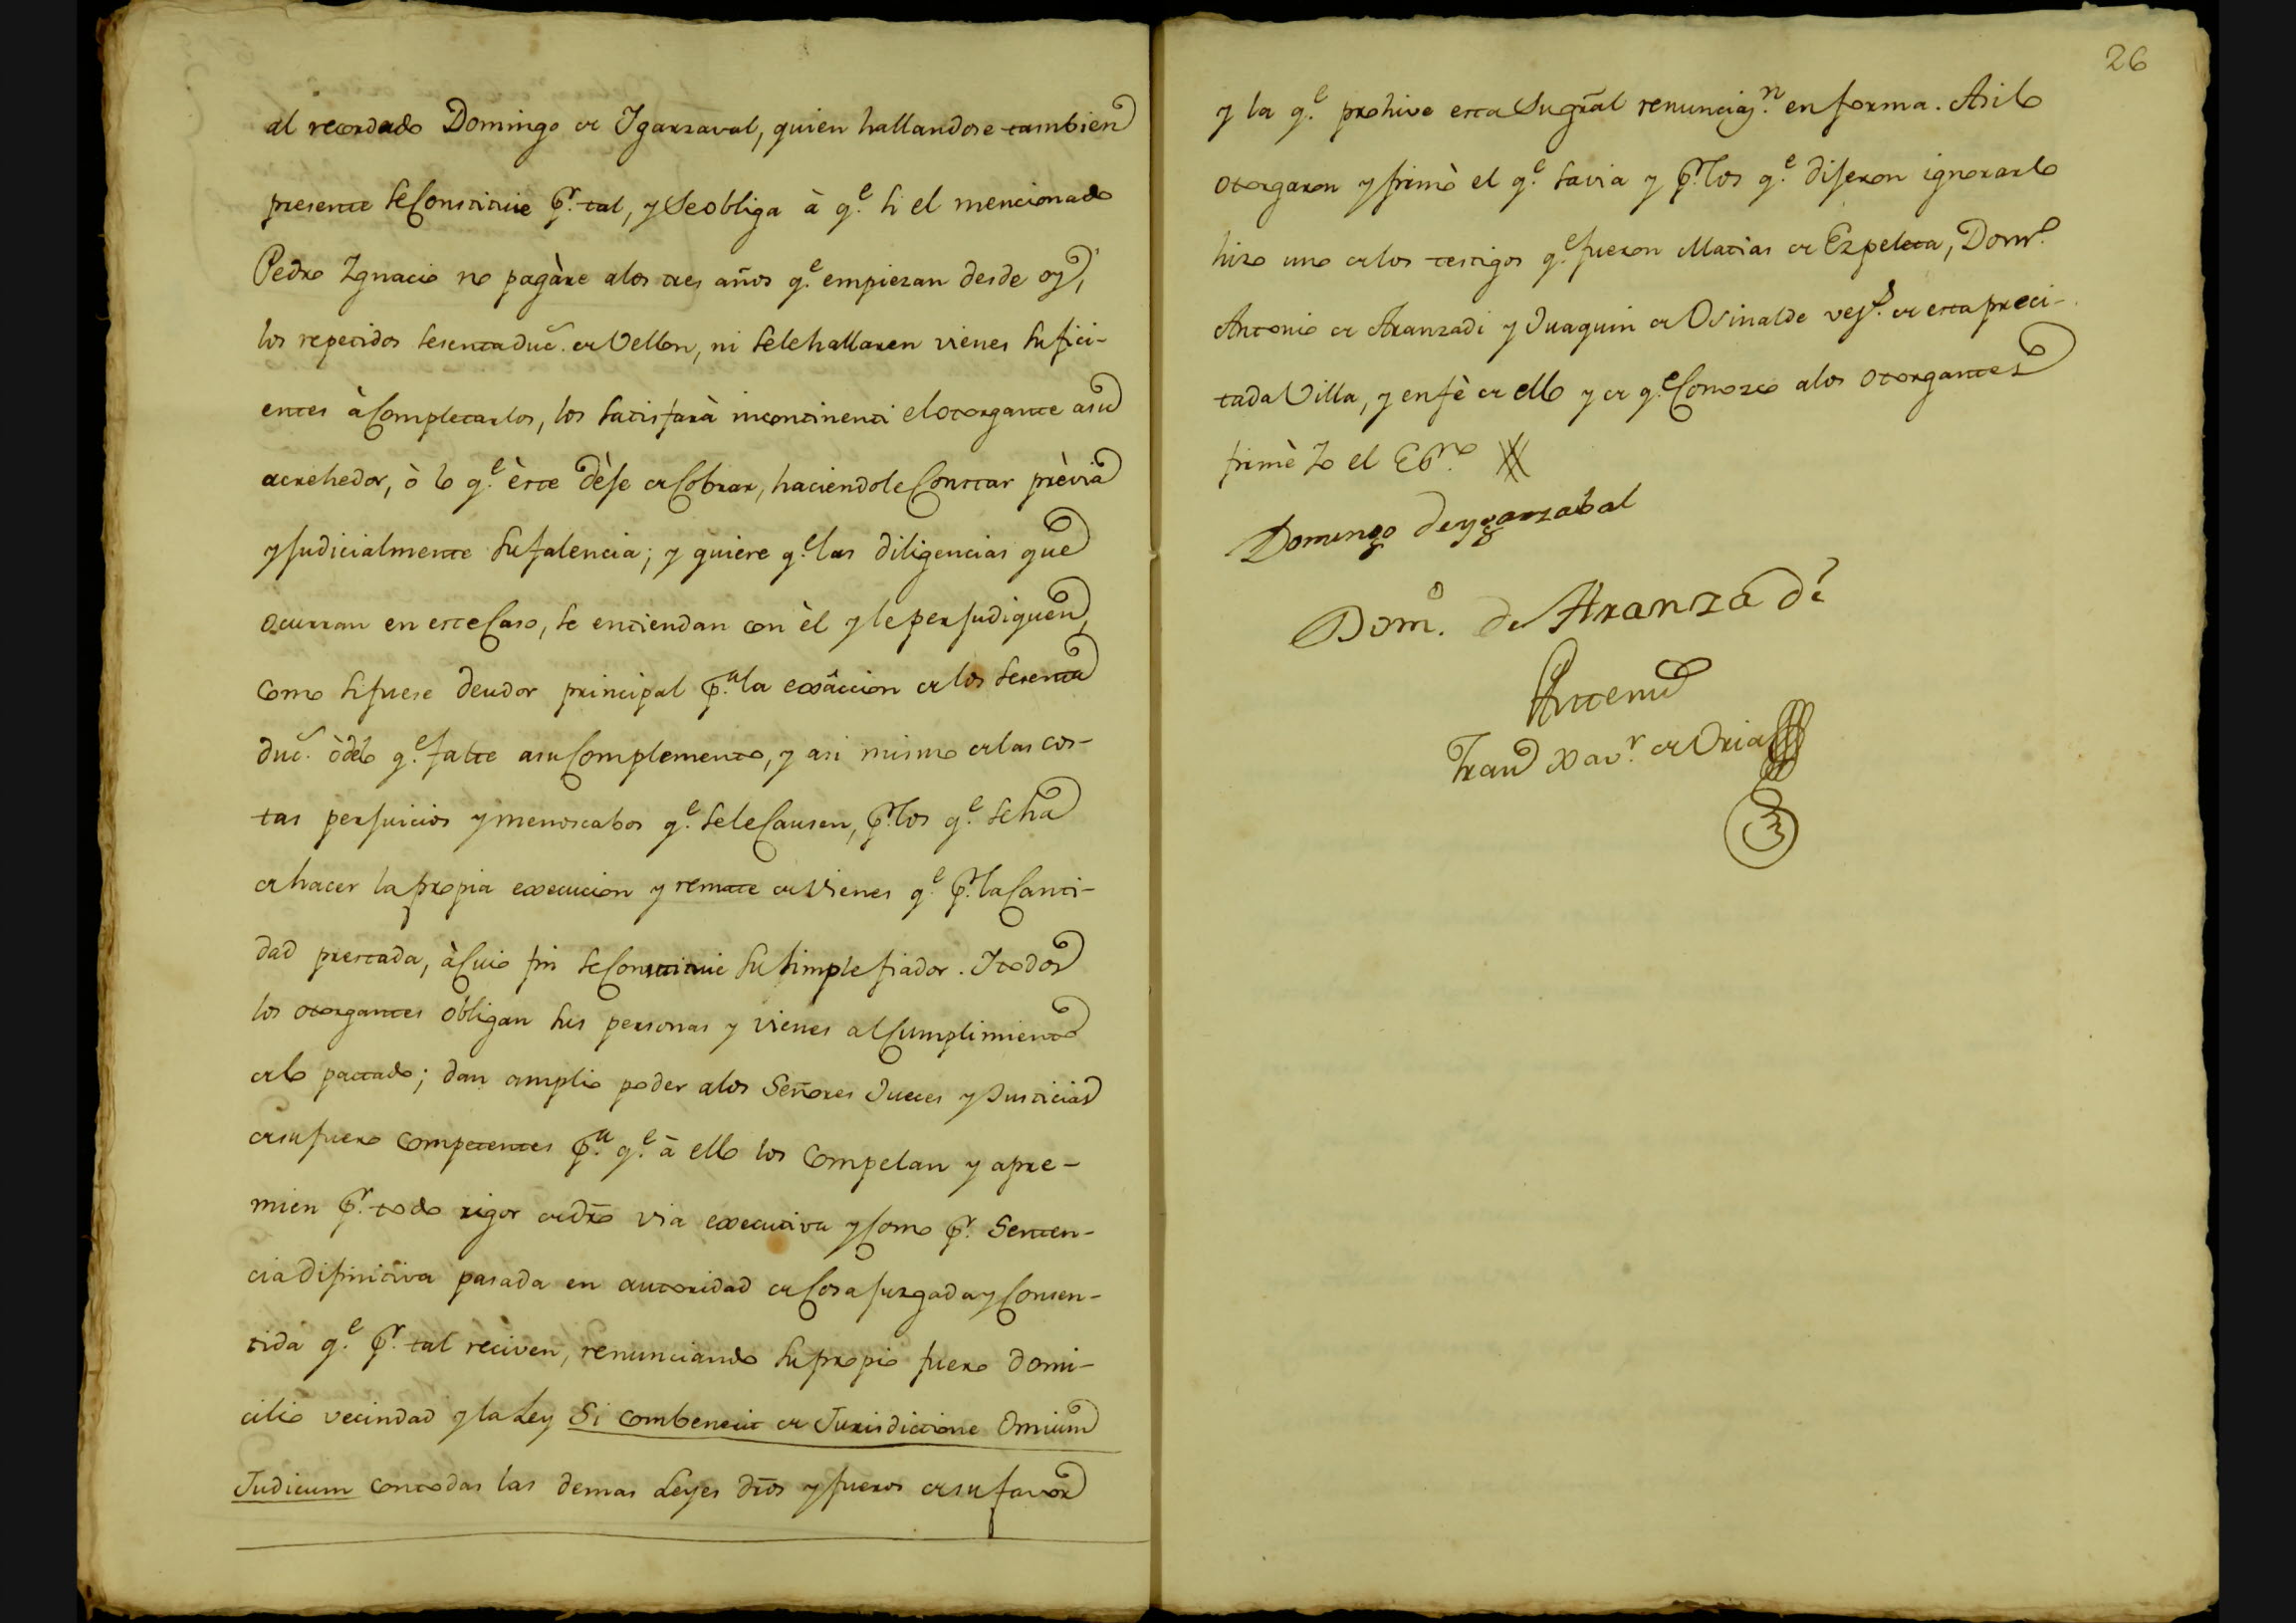 al recordado Domingo de Igarzaval, quien hallandose tambien
presente se constituie pr. tal, y se obliga à qe. si el mencionado
Pedro Ignacio no pagàre alos tres años qe. empiezan desde oy,
los repetidos sesenta duc. de Vellon, ni sele hallaren vienes sufici-
entes à completarlos, los satisfarà incontinenti el otorgante asu
acrehedor, ò lo qe. èste dèje de cobrar, haciendole constar prèvia
y judicialmente su falencia; y quiere qe. las diligencias que
ocurran en este caso, se entiendan con èl y le perjudiquen,
como si fuese deudor principal pa. la exâccion de los sesenta
duc. òdelo qe. falte asu complemento, y asi mismo de las cos-
tas perjuicios y menoscabos qe. sele causen, pr. los qe. se ha
de hacer la propia execucion y remate de vienes qe. pr. la canti-
dad prestada, à cuio fin se constituie su simple fiador. Y todos
los otorgantes obligan sus personas y vienes al cumplimiento
de lo pactado; dan amplio poder alos Señores Jueces y Justicias
de su fuero competentes pa. qe. à ello los compelan y apre-
mien pr. todo rigor de dro via executiva y como pr. Senten-
cia difinitiva pasada en autoridad de cosa juzgada y consen-
tida qe. pr. tal reciven, renunciando su propio fuero domi-
cilio vecindad y la Ley Si combenerit de Jurisdictione Omium
Judicum con todas las demas Leyes dros y fueros de su favor
26
y la qe. prohive esta su gral renunciaz.n en forma. Asi lo
otorgaron y firmò el qe. savia y pr. los qe. dijeron ignorarlo
hizo uno de los testigos qe. fueron Matias de Ezpeleta, Domo.
Antonio de Aranzadi y Juaquin de Osinalde vezs. de esta preci-
tada Villa, y en fè de ello y de qe. conozco alos otorgantes
firmè Yo el Esno.
Domingo de ygarzabal
Domo. de Aranzadi
Antemi
Franco Xavr. de Oria